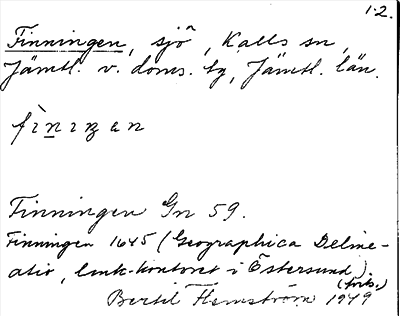 1-2.
Finningen, sjö, Kalls sn,
Jämtl. v. doms. tg, Jämtl. län.
fìniŋen
Finningen Gn 59.
Finningen 1645 (Geographica Deline-
atio, lmk-kontoret i Östersund)
(forts.)
Bertil Flemström 1949